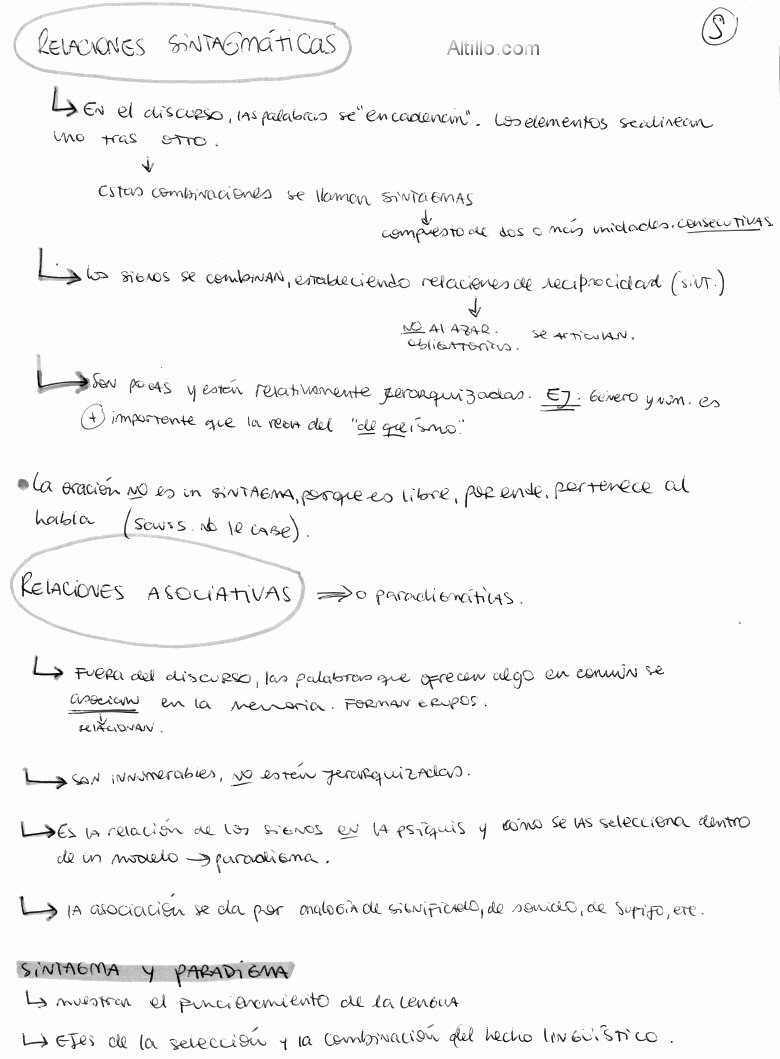 RELACIONES SINTAGMÁTICAS
Altillo.com
5
↳ EN el discurso, las palabras se "encadenan". Los elementos se alinean
uno tras otro.
↓
Estas combinaciones se llaman SINTAGMAS
↓
compuesto de dos o más unidades. CONSECUTIVAS
↳ Los signos se combinan, estableciendo relaciones de reciprocidad (SINT.)
↓
NO AL AZAR. SE ARTICULAN.
OBLIGATORIOS.
↳ Son pocas y están relativamente jerarquizadas. EJ: Género y núm. es
(+) importante que la regla del "de queísmo"
• La oración NO es un SINTAGMA, porque es libre, por ende, pertenece al
habla (Sauss. No le cabe).
RELACIONES ASOCIATIVAS ⇒ o paradigmáticas.
↳ FUERA del discurso, las palabras que ofrecen algo en común se
asocian en la memoria. FORMAN GRUPOS.
↓
RELACIONAN.
↳ SON INNUMERABLES, NO están jerarquizadas.
↳ Es la relación de los signos en la psiquis y cómo se las selecciona dentro
de un modelo → paradigma.
↳ la asociación se da por analogía de SIGNIFICADO, de sonido, de sufijo, etc.
SINTAGMA Y PARADIGMA
↳ muestran el funcionamiento de la LENGUA
↳ EJes de la selección y la combinación del hecho LINGÜÍSTICO.